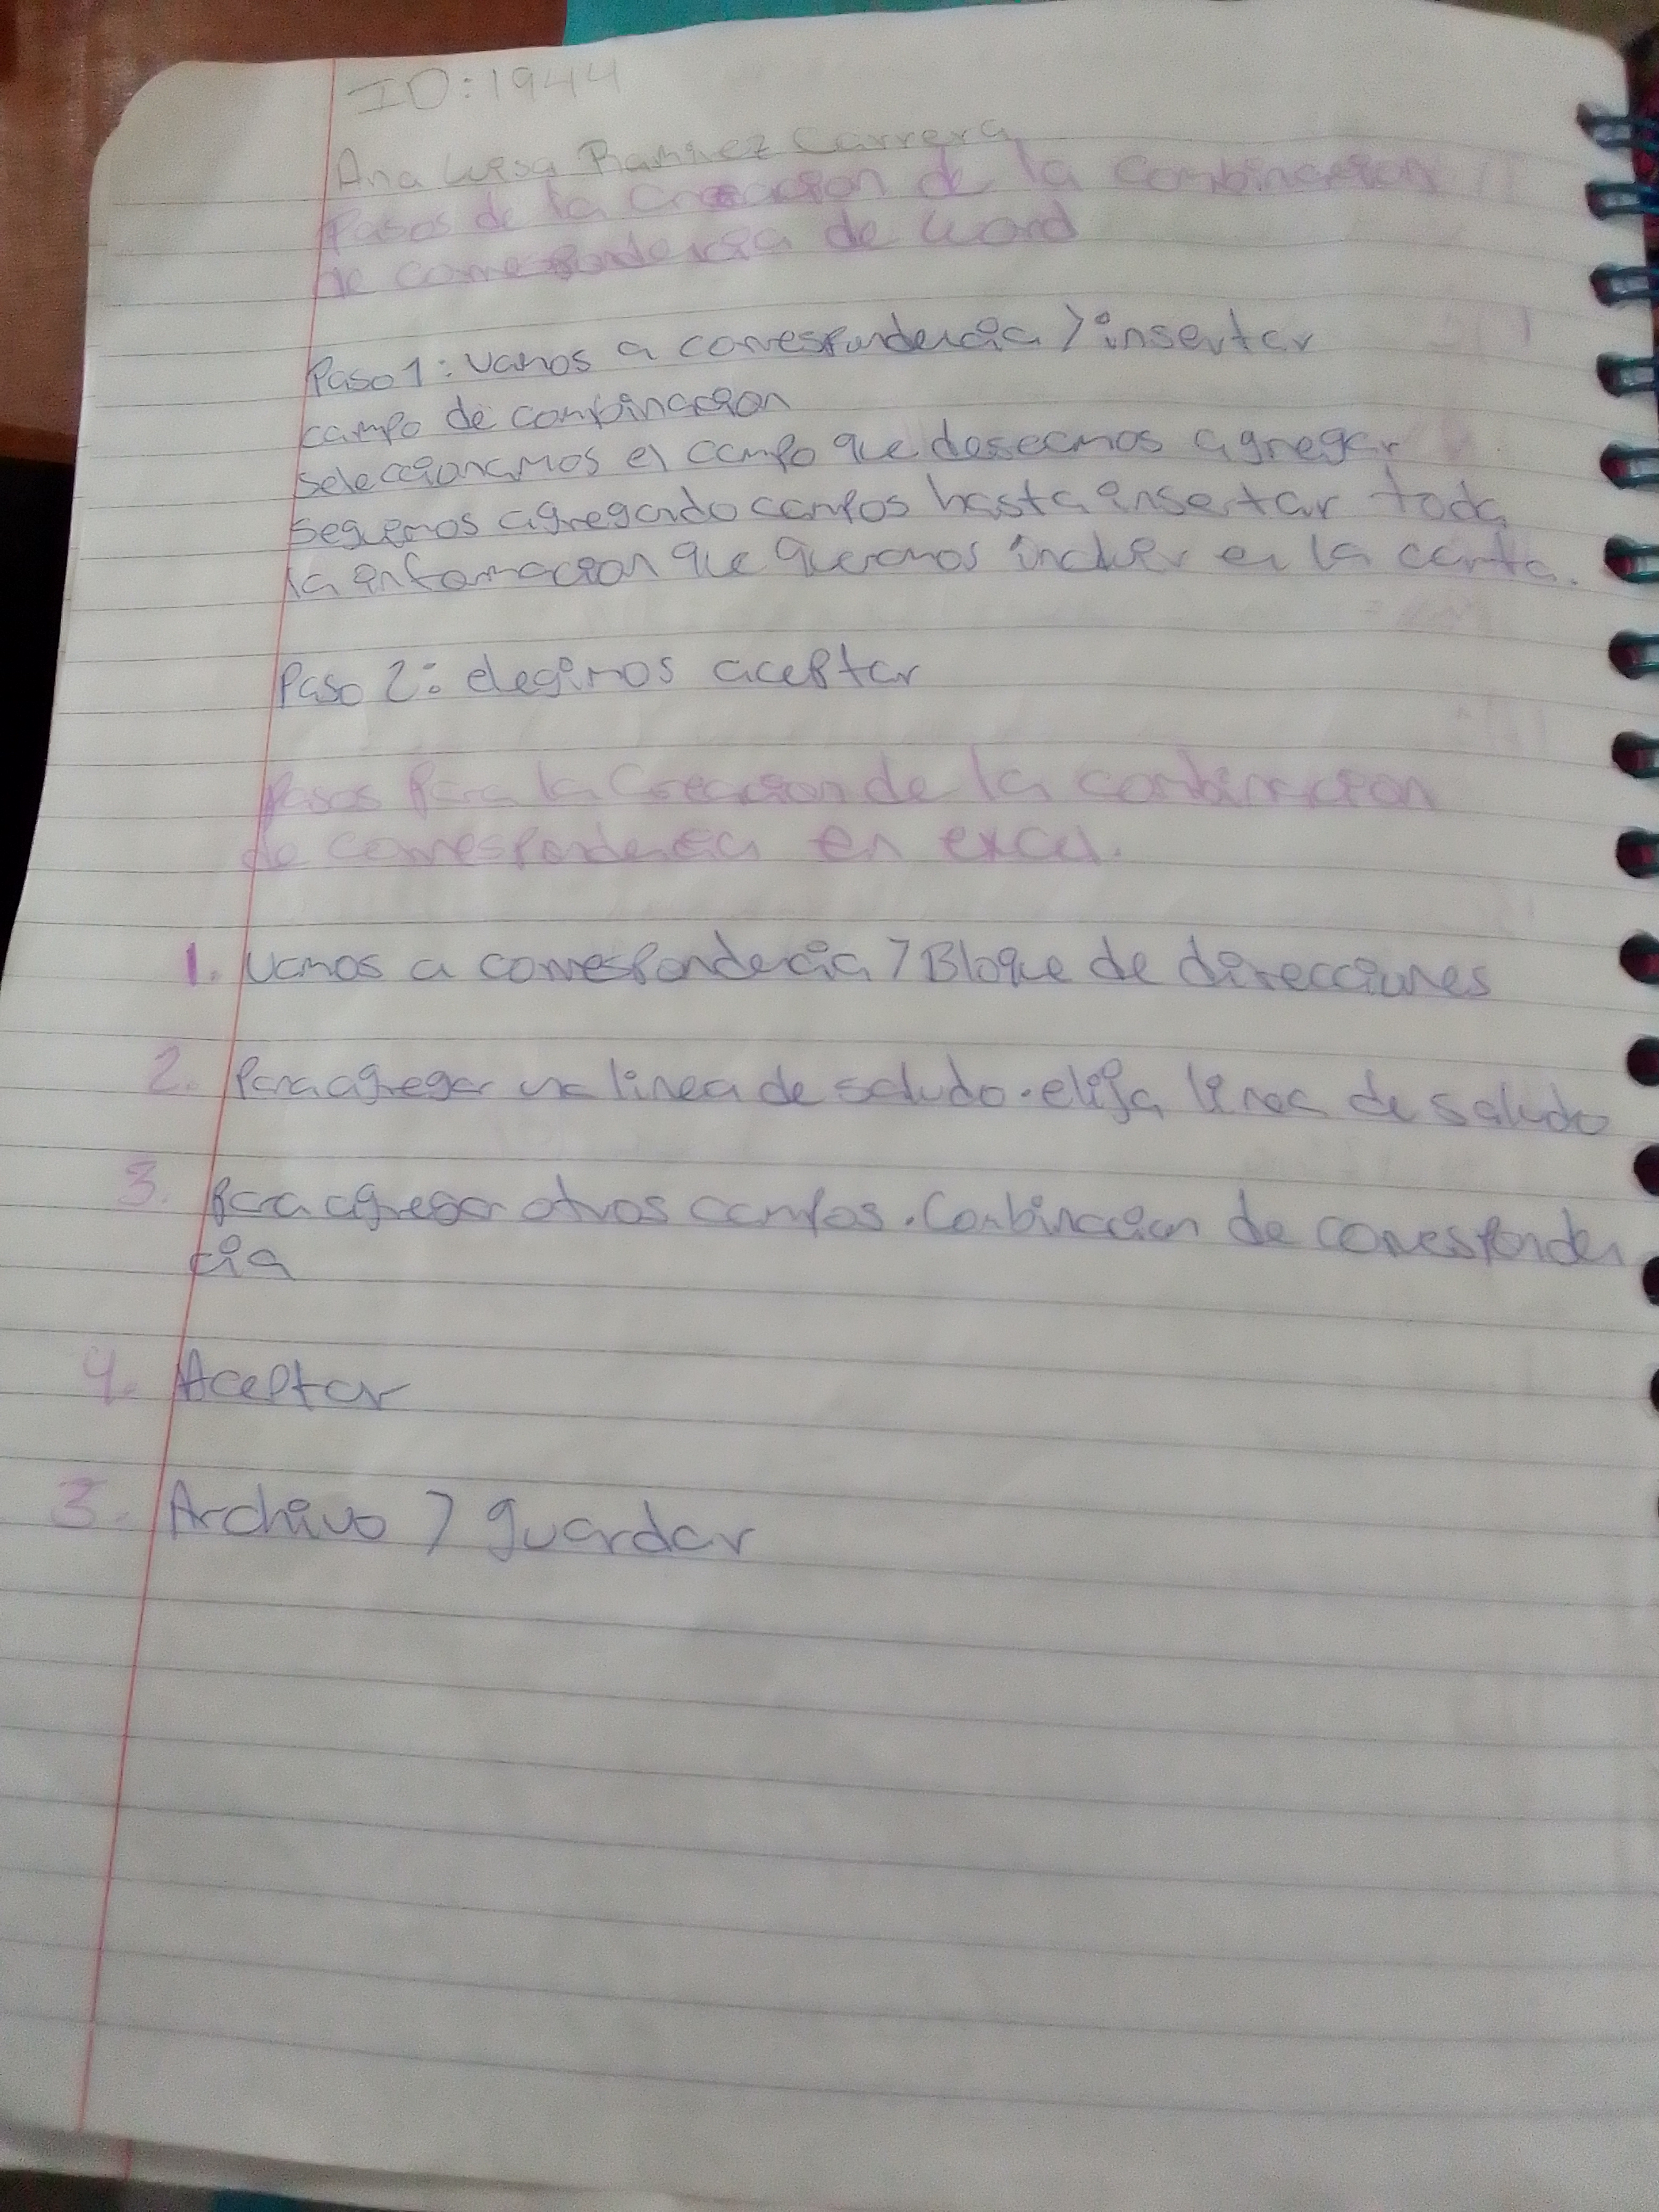 ID:1944
Ana Luisa Ramirez Carrera
Pasos de la Creacion de la Combinacion
de correspondencia de word
Paso 1: vamos a correspondencia > insertar
campo de combinacion
seleccionamos el campo que deseamos agregar
seguimos agregando campos hasta insertar toda
la informacion que queremos incluir en la carta.
Paso 2: elegimos aceptar
Pasos para la Creacion de la combinacion
de correspondencia en excel.
1. Vamos a correspondencia > Bloque de direcciones
2. Para agregar una linea de saludo. elija linea de saludo
3. Para agregar otros campos. Combinacion de corresponden
cia
4. Aceptar
5. Archivo > guardar